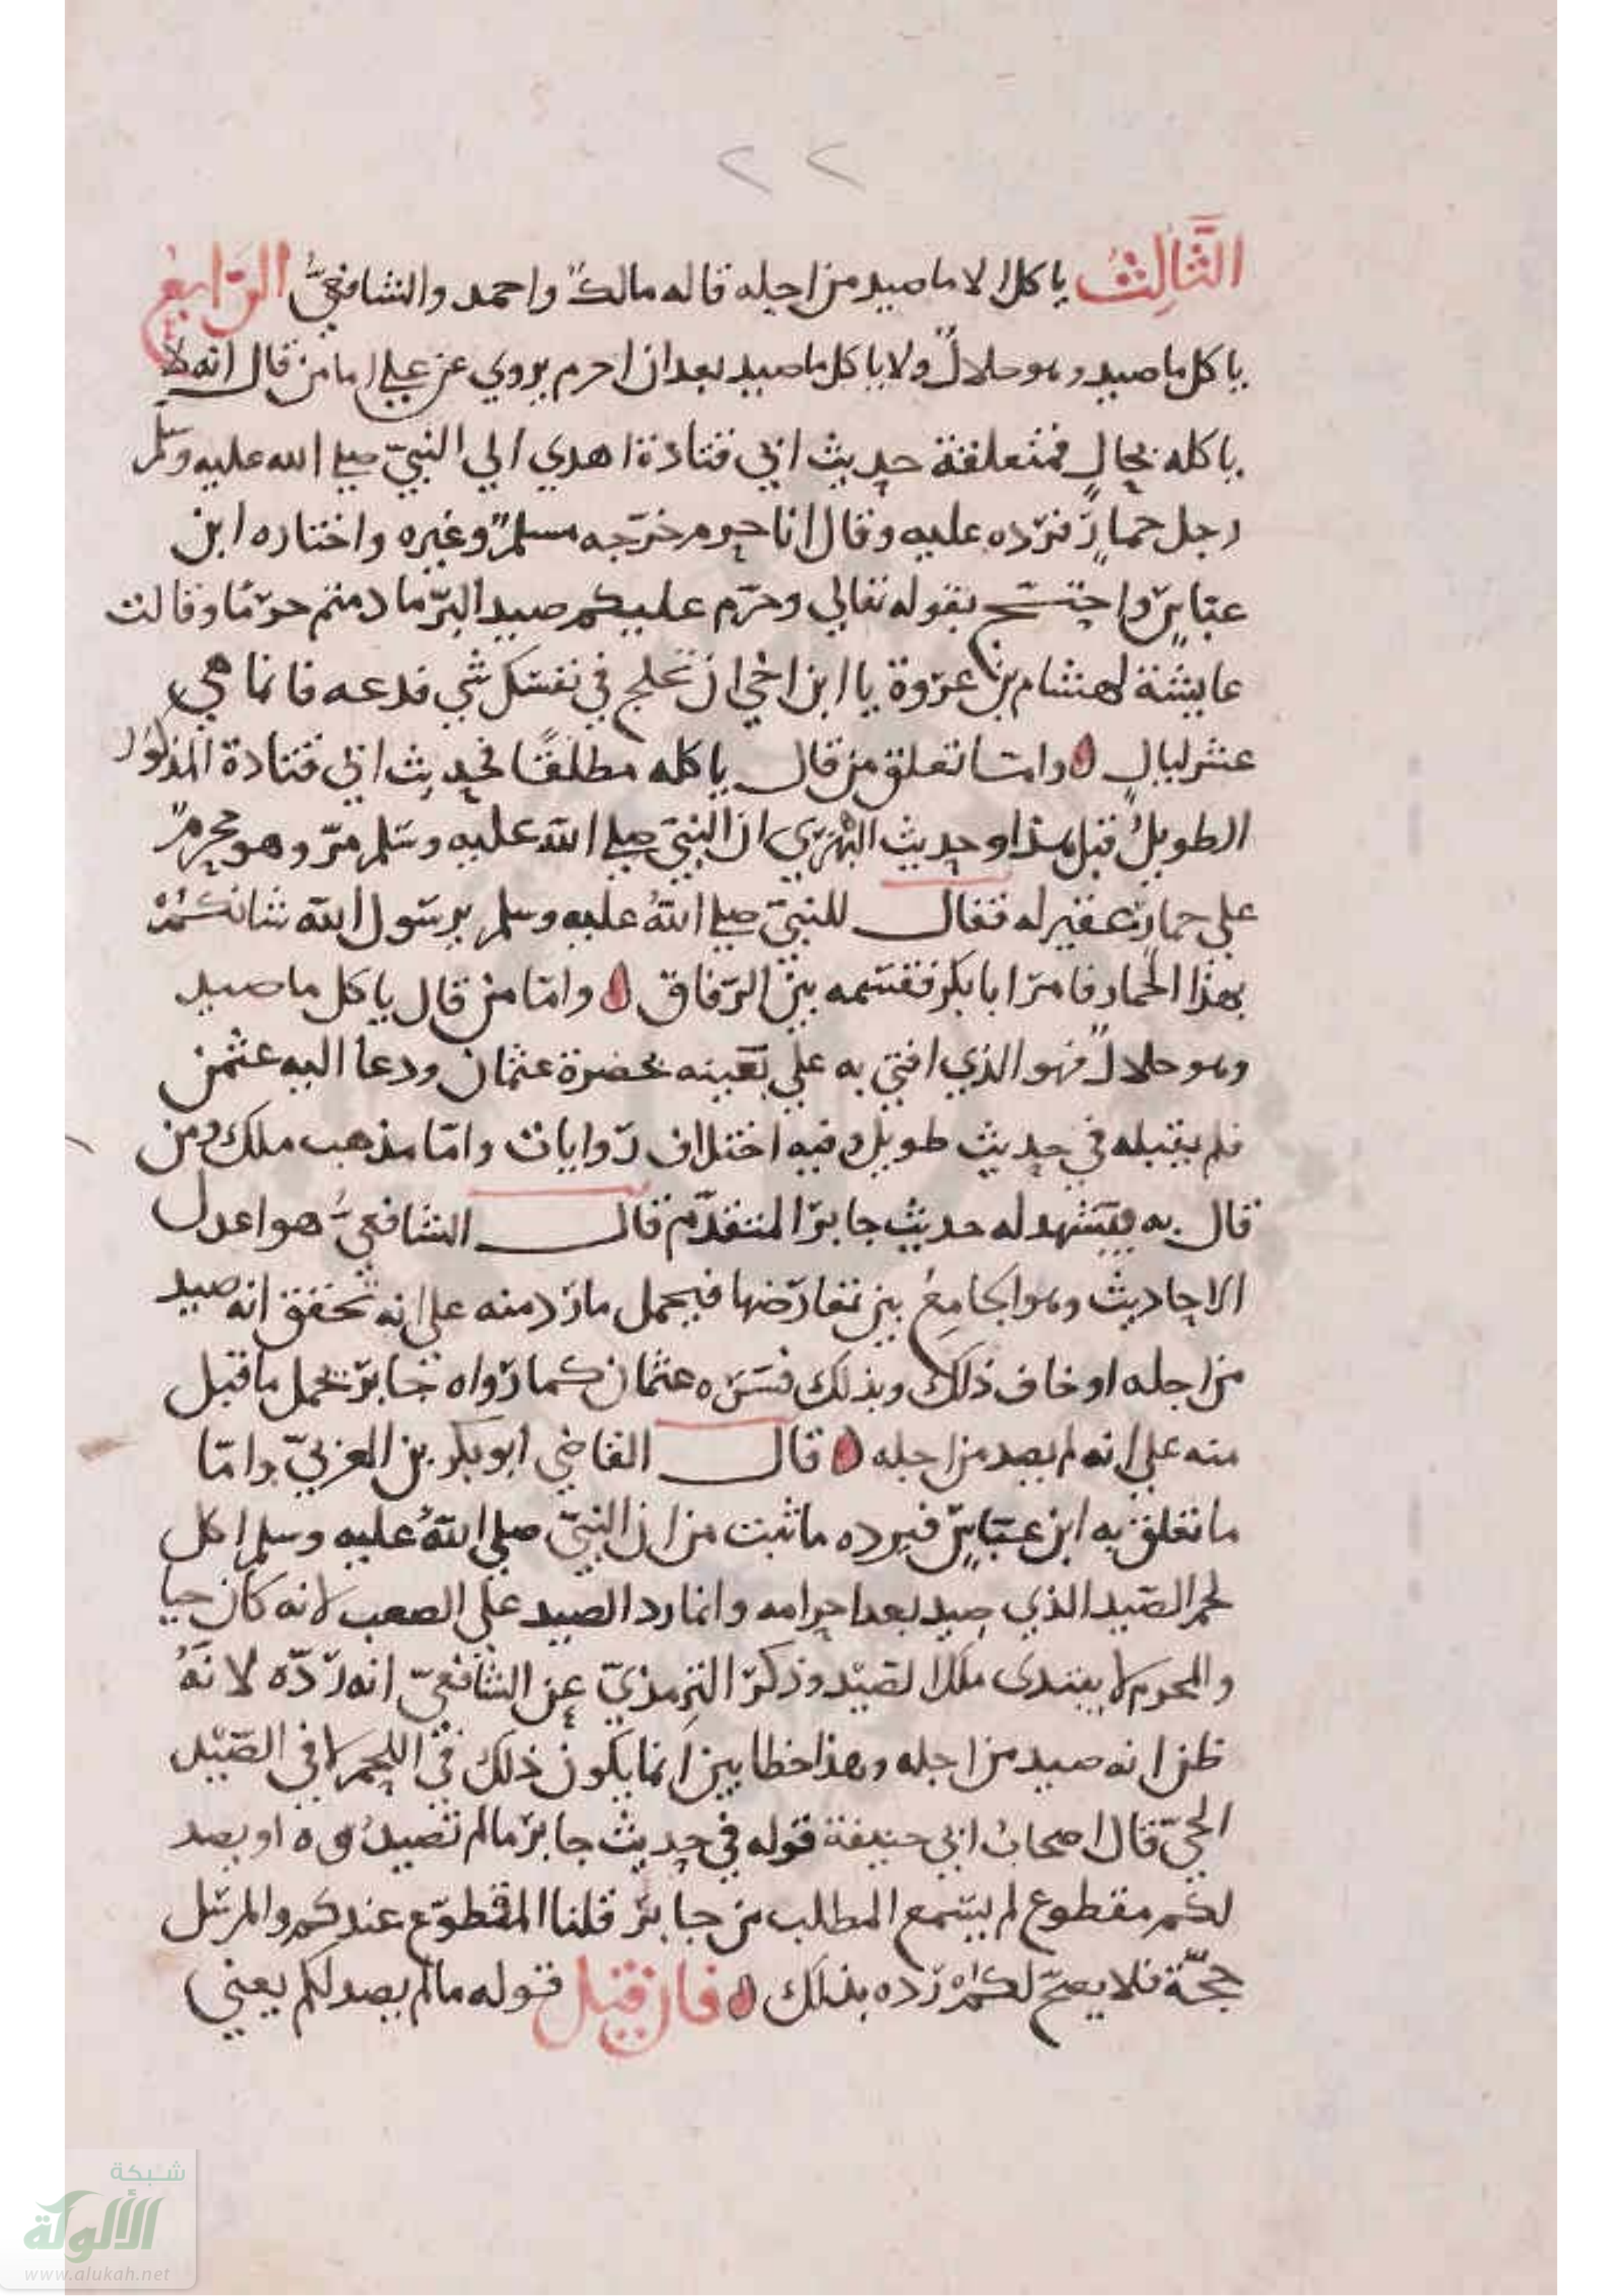 ٢٢
الثَّالِثُ ياكل الا ما صيد من اجله قاله مالكٌ واحمد والشافعيُّ الرّابع
ياكل ما صيد وهو حلالٌ ولا ياكل ما صيد بعد ان احرم يروي عن علي اما من قال انه لا
ياكله بحالٍ فمتعلقة حديث ابي قتادة اهدي الي النبيّ صلي الله عليه وسلم
رجل حمارٍ فردّه عليه وقال انا حرم خرّجه مسلمٌ وغيره واختاره ابن
عبّاسٍ واحتـــج بقوله تعالي وحرّم عليكم صيد البرّ ما دمتم حرمًا وقالت
عايشة لهشام بن عروة يا ابن اخي ان تحلج في نفسك شي فدعه فانما هي
عشر ليالٍ ٥ وامّا تعلق من قال ياكله مطلقًا فحديث ابي قتادة المذكور
الطويلُ قبل هذا وحديث البَهْزي ان النبيّ صلي الله عليه وسلم مرّ وهو محرمٌ
علي حمارٍ عقير له فقال للنبيّ صلي اللهُ عليه وسلم يرسول الله شانكمُ
بهذا الحمار فامر ابا بكر فقسّمه بين الرفاق ٥ وامّا من قال ياكل ما صيد
وهو حلالٌ فهو الذي افتي به علي بعينه بحضرة عثمان ودعا اليه عثمن
فلم يقبله في حديث طويل وفيه اختلاف روايات وامّا مذهب ملك ومن
قال به فيشهد له حديث جابر المتقدّم قال الشافعيُّ هو اعدل
الاحاديث وهو الجامعُ بين تعارضها فيحمل ما ردّ منه علي انه تحقق انه صيد
من اجله او خاف ذلك وبذلك فسّره عثمان كما رواه جابر يحمل ما قبل
منه علي انه لم يصد من اجله ٥ قال القاضي ابو بكر بن العربيّ وامّا
ما تعلق به ابن عبّاسٍ فيرده ما ثبت من ان النبيّ صلي اللهُ عليه وسلم اكل
لحم الصّيد الذي صيد بعد احرامه وانما رد الصيد علي الصعب لانه كان حيا
والمحرم لا يبتدى ملك الصّيْد وذكر الترمذيّ عن الشافعيّ انه ردّه لانهُ
ظن انه صيد من اجله وهذا خطا بين انما يكون ذلك في اللحم لا في الصّيْد
الحيّ قال اصحابُ ابي حنيفة قوله في حديث جابر ما لم تصيدُوه او يصد
لكم مقطوع لم يسمع المطلب من جابر قلنا المقطوع عندكم والمرسل
حجّة فلا يصحّ لكمْ رده بذلك ٥ فان قيل قوله ما لم يصد لكم يعني
شبكة
الألوكة
www.alukah.net